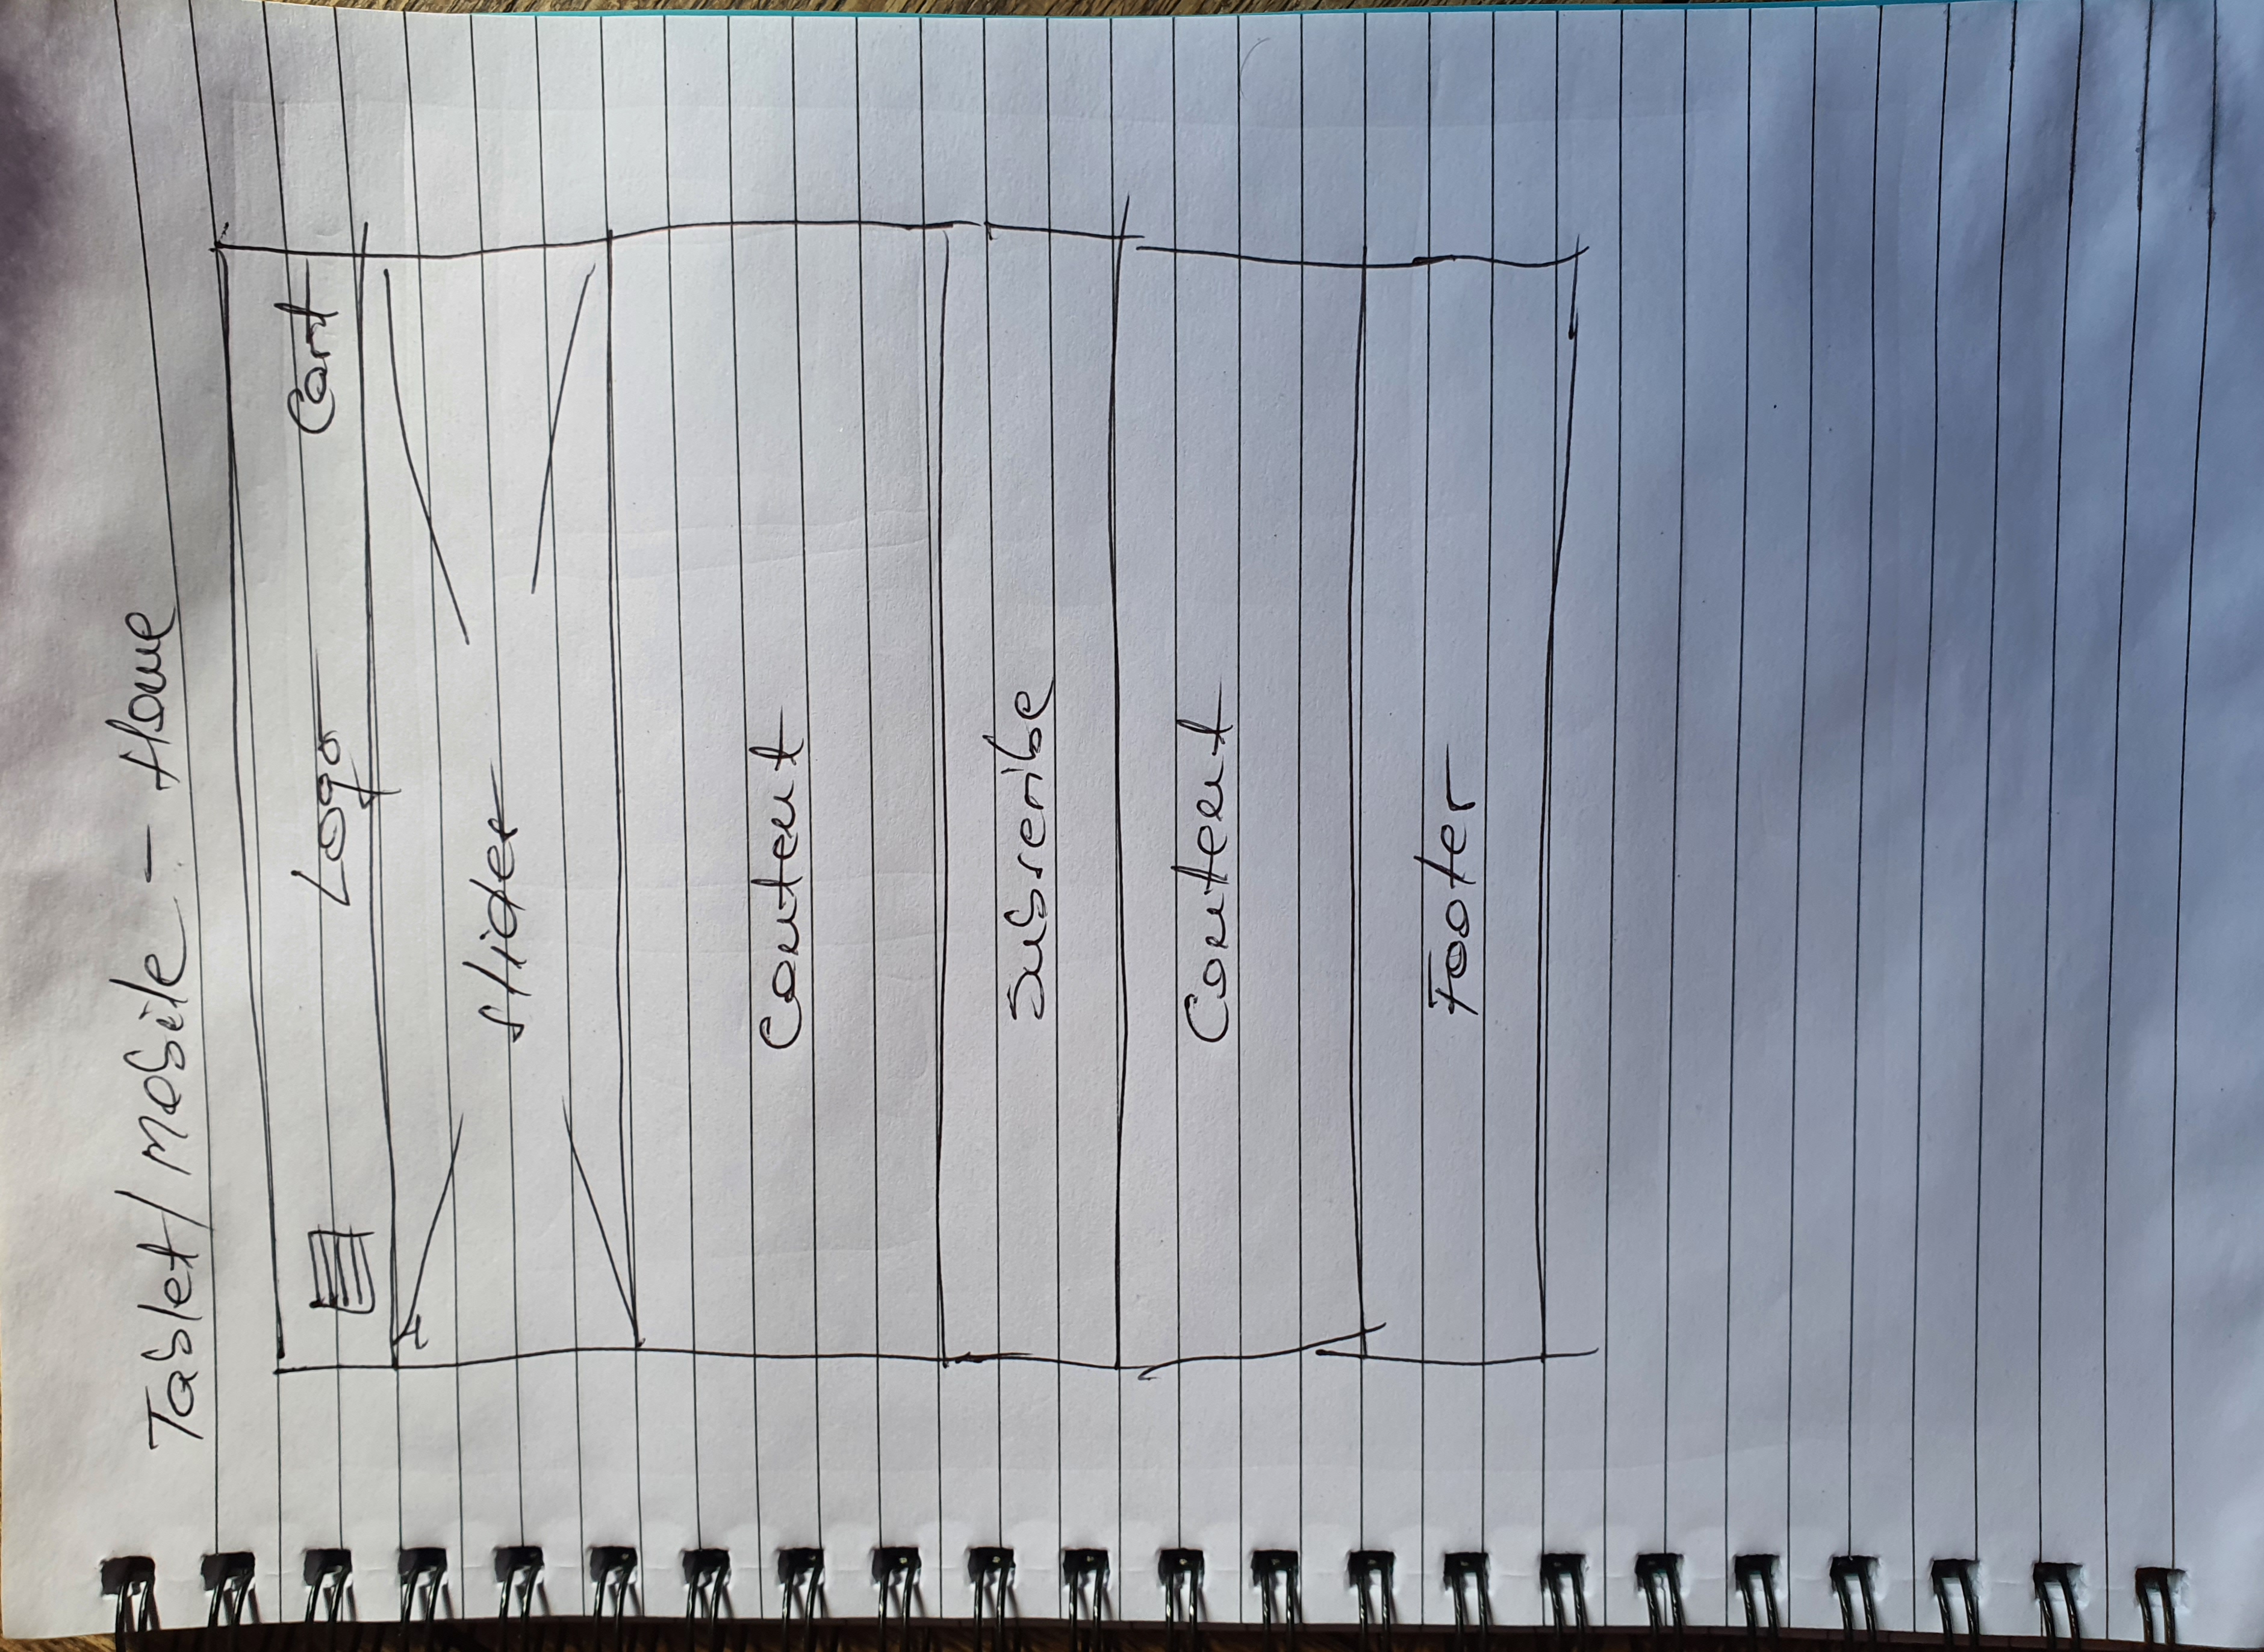 Tablet/Mobile - Home
Logo Cart
Slider
Content
Subscribe
Content
Footer